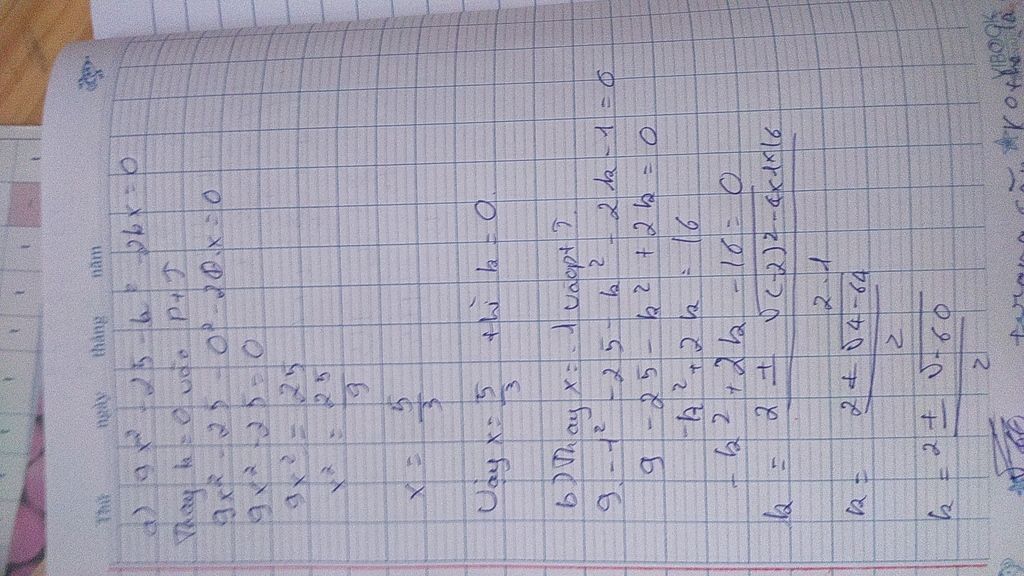 Thứ ngày tháng năm
a) 9x² - 25 - k² - 2kx = 0
Thay k = 0 vào pt
9x² - 25 - 0² - 2.0.x = 0
9x² - 25 = 0
9x² = 25
x² = 25/9
x = 5/3
Vậy x = 5/3 thì k = 0
b) Thay x = -1 vào pt
9 - 1² - 25 - k² - 2k - 1 = 0
9 - 25 - k² + 2k = 0
-k² + 2k = 16
-k² + 2k - 16 = 0
k = 2 ± √(-2)² - 4x1x16 / 2.1
k = 2 ± √4 - 64 / 2
k = 2 ± √-60 / 2